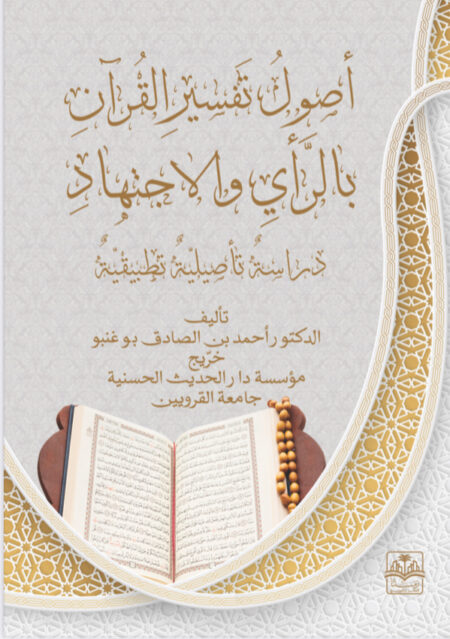 أصولُ تَفسِيرِ القُرآنِ
بالرَّأيِ والاجتهادِ
دراسةٌ تأصيليةٌ تطبيقيةٌ
تأليف
الدكتور أحمد بن الصادق بوغنبو
خرّيج
مؤسسة دار الحديث الحسنية
جامعة القرويين